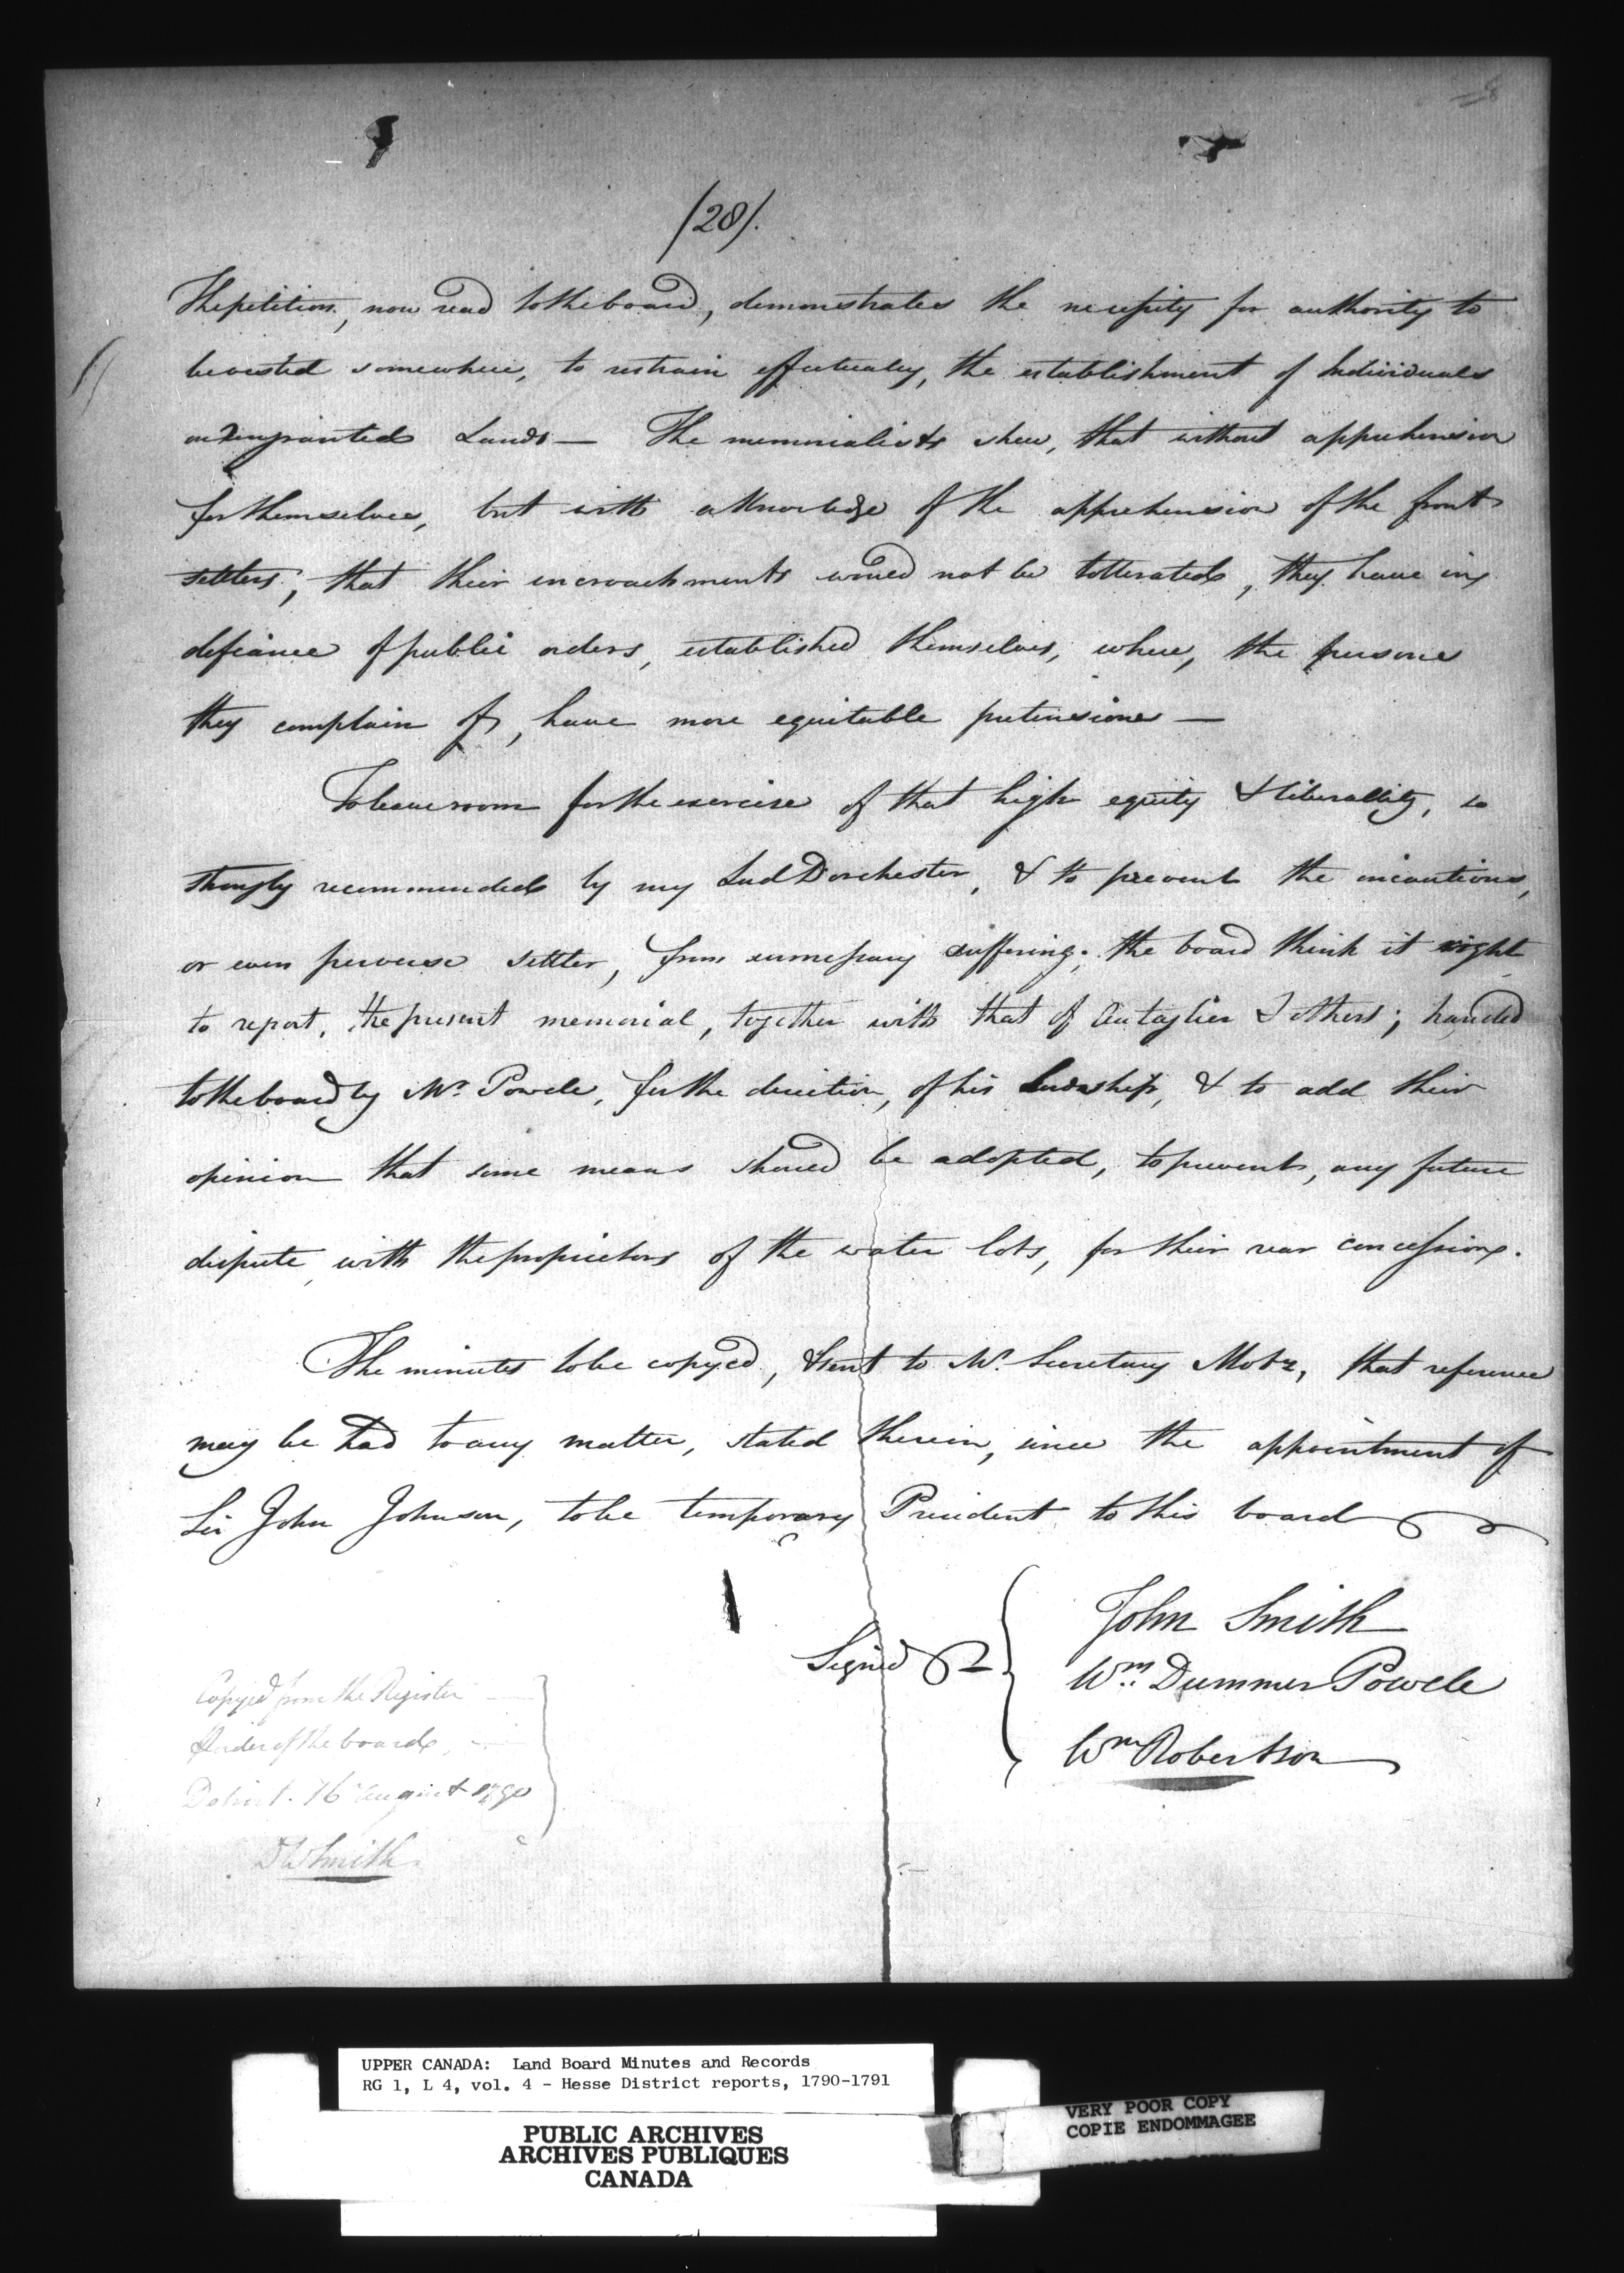 (28).
The petition, now read to the board, demonstrates the necessity for authority to
be vested somewhere, to restrain effectualy, the establishment of Individuals
on ungranted Lands — The memorialists shew, that without apprehension
for themselves, but with a knowledge of the apprehension of the front
settlers, that their incroachments would not be tollerated, they have in
defiance of public orders, established themselves, where, the persons
they complain of, have more equitable pretensions —
To leave room for the exercise of that high equity & liberallity, so
strongly recommended by my Lord Dorchester, & to prevent the incautious,
or even perverse settler, from unnecessary suffering; the board think it right
to report, the present memorial, together with that of & others; handed
to the board by Mr. Powell, for the direction, of his Lordship, & to add their
opinion that some means should be adopted, to prevent, any future
dispute, with the proprietors of the water lots, for their rear concessions.
The minutes to be copyed, & sent to Mr. Secretary Motz, that reference
may be had to any matter, stated therein, since the appointment of
Sir John Johnson, to be temporary President to this board
Signed
John Smith
Wm. Dummer Powell
Wm Robertson
Copyed from the Register
order of the board,
Detroit. 16 August 1790
D W Smith
UPPER CANADA: Land Board Minutes and Records
RG 1, L 4, vol. 4 - Hesse District reports, 1790-1791
PUBLIC ARCHIVES
ARCHIVES PUBLIQUES
CANADA
VERY POOR COPY
COPIE ENDOMMAGEE